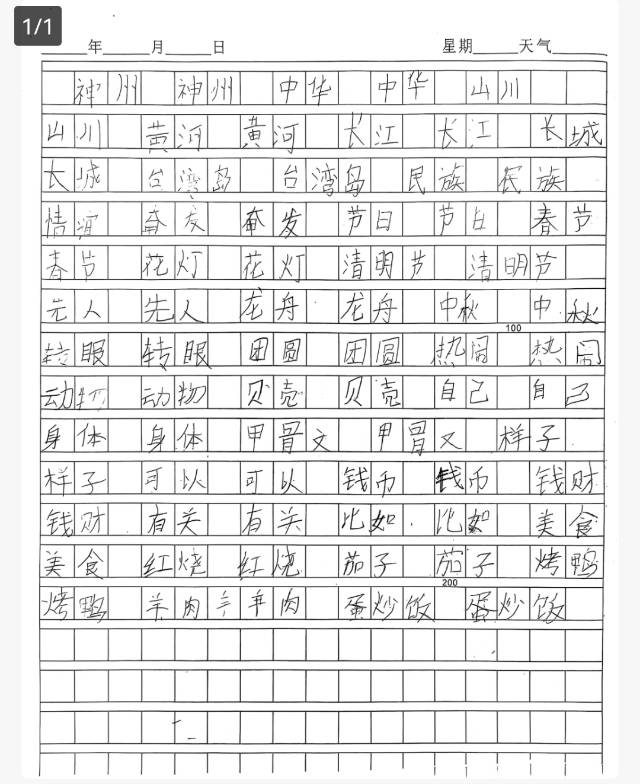 1/1
年 月 日 星期 天气
神州 神州 中华 中华 山川
山川 黄河 黄河 长江 长江 长城
长城 台湾岛 台湾岛 民族 民族
情谊 奋发 奋发 节日 节日 春节
春节 花灯 花灯 清明节 清明节
先人 先人 龙舟 龙舟 中秋 中秋
100
转眼 转眼 团圆 团圆 热闹 热闹
动物 动物 贝壳 贝壳 自己 自己
身体 身体 甲骨文 甲骨文 样子
样子 可以 可以 钱币 钱币 钱财
钱财 有关 有关 比如 比如 美食
美食 红烧 红烧 茄子 茄子 烤鸭
200
烤鸭 羊肉 羊肉 蛋炒饭 蛋炒饭